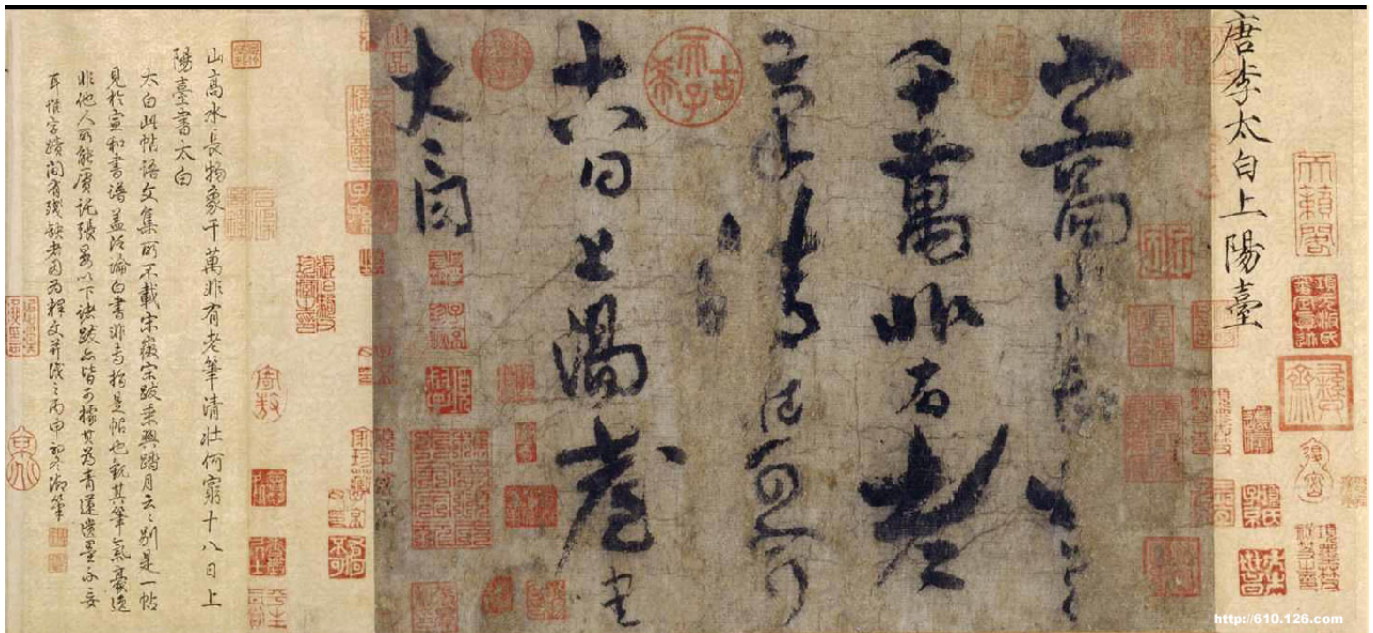 唐李太白上陽臺
天籟閣
山高水長物象
千萬非有老
筆清壯可窮
十八日上陽臺書
太白
古希天子
山高水長物象千萬非有老筆清壯何窮十八日上
陽臺書太白
太白此帖語文集所不載宋徽宗跋乘興踏月云云別是一帖
見於宣和書譜蓋泛論白書非專指是帖也觀其筆氣豪逸
非他人所能贋託張晏以下諸跋亦皆可據其為青蓮遺墨不妄
耳惟字蹟間有殘缺者因為釋文并識之丙申初冬御筆
http://610.126.com